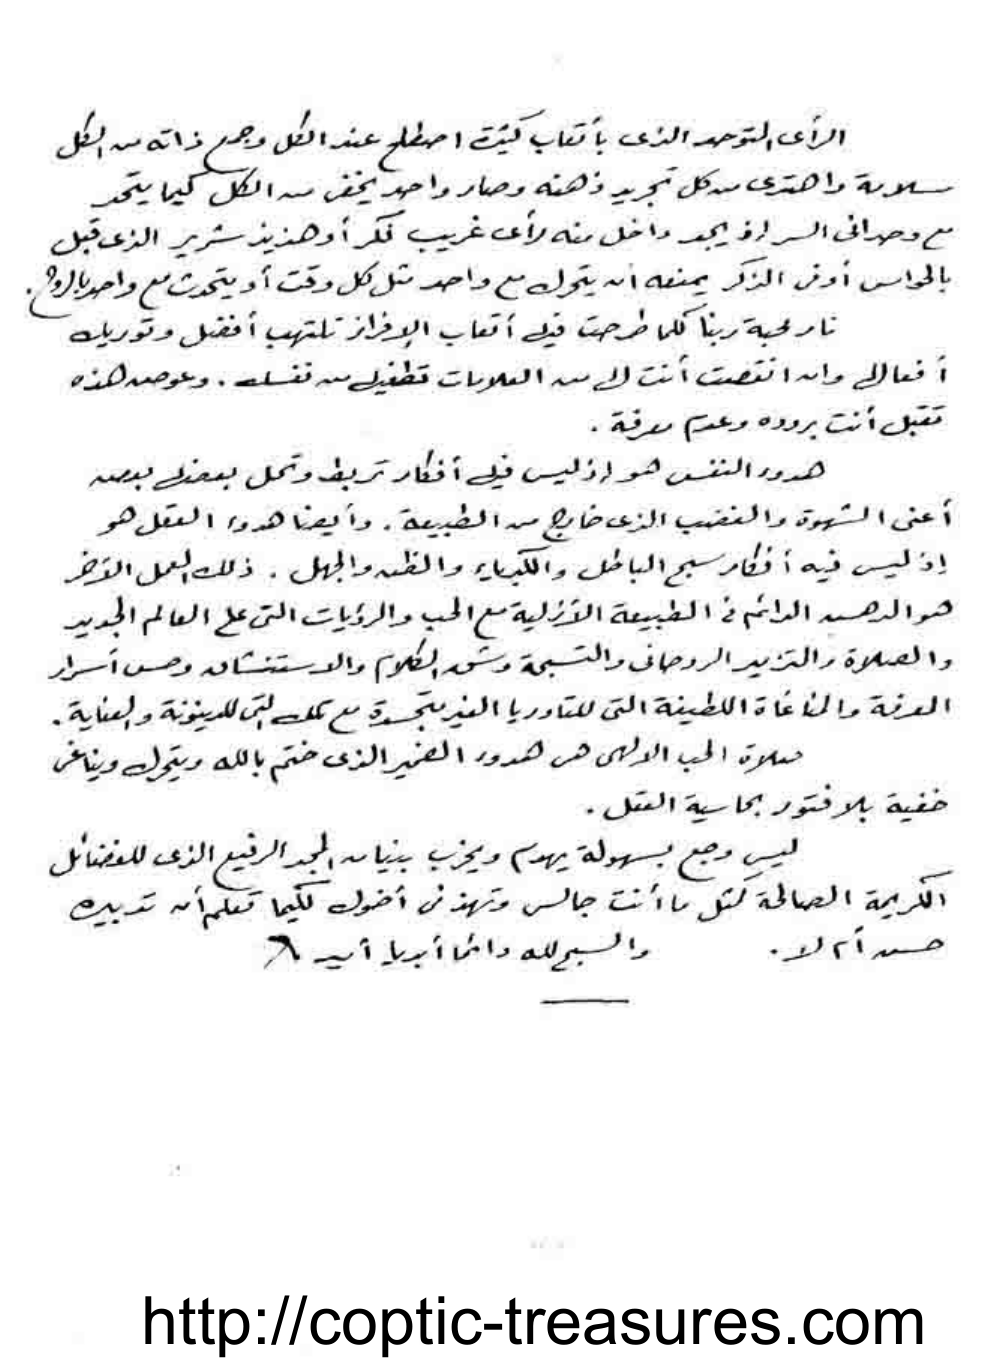 الرأى المتوحد الذى بأتعاب كثيرة اصطلح عند الكل وجمع ذاته من الكل
سلامة واهتدى من كل تجريد ذهنه وصار واحد يخفى من الكل كيما يتحد
مع وحدانى السر إذ يجد داخل منه رأى غريب فكر أو هذيذ شرير الذى قبل
بالحواس أو فى الذكر يمنعه أن يتحرك مع واحد مثل كل وقت أو يتحدث مع واحد بالروح.
نار محبة ربنا كلما طرحت فيك أتعاب الإفراز تلتهب أفضل وتوريك
أفعالك وان انقصت أنت لك من العلامات تطفيك من نفسك. وعوض هذه
تقبل أنت برودة وعدم معرفة.
هدوء النفس هو إذ ليس فيك أفكار تربط وتحل بعضك ببعض
أعنى الشهوة والغضب الذى خارج من الطبيعة. وأيضا هدوء العقل هو
إذ ليس فيه أفكار سبح الباطل والكبرياء والظن والجهل. ذلك العمل الآخر
هو الدهش الدائم فى الطبيعة الأزلية مع الحب والرؤيات التى على العالم الجديد
والصلاة والتزيد الروحانى والتسبحة وشق الكلام والاستنشاق وحس أسرار
المعرفة والمناغاة اللطيفة التى للتاوريا الغير متجسدة مع تلك التى للدينونة والعناية.
صلاة الحب الالهى هى هدوء الضمير الذى ختم بالله ويتحرك ويناغى
خفية بلا فتور بحاسية العقل.
ليس وجع بسهولة يهدم ويخرب بنيان المجد الرفيع الذى للفضائل
الكريمة الصالحة كمثل ما أنت جالس وتهذ فى أخوك لكيما تعلم أن تدبيره
حسن أم لا. والسبح لله دائما أبديا أمين
http://coptic-treasures.com